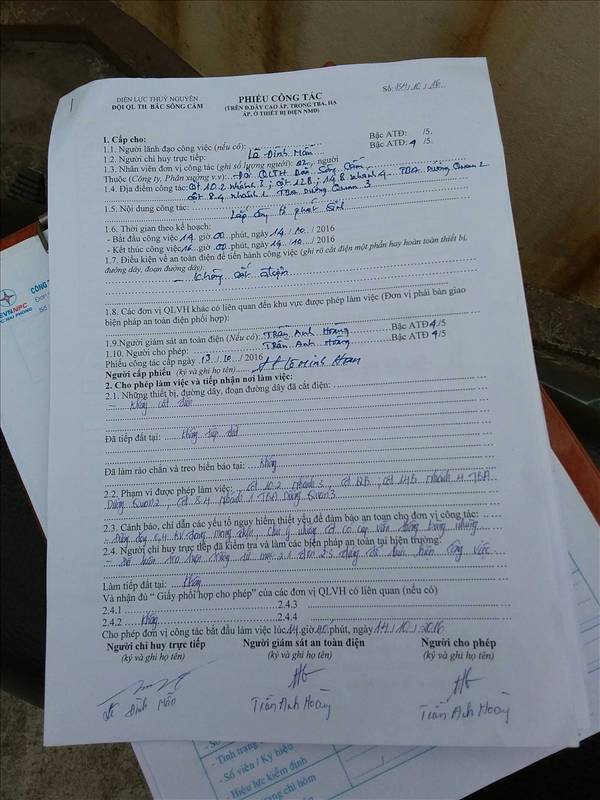 ĐIỆN LỰC THUỶ NGUYÊN
ĐỘI QL TH BẮC SÔNG CẤM
PHIẾU CÔNG TÁC
(TRÊN Đ.DÂY CAO ÁP, TRONG TBA, HẠ
ÁP, Ở THIẾT BỊ ĐIỆN NMĐ)
Số: /10/16
1. Cấp cho:
1.1. Người lãnh đạo công việc (nếu có): Bậc ATĐ: /5.
1.2. Người chỉ huy trực tiếp: Lê Đình Mẫn Bậc ATĐ: 4 /5.
1.3. Nhân viên đơn vị công tác (ghi số lượng người): 02 người
Thuộc (Công ty, Phân xưởng v.v): Đội QLTH Bắc Sông Cấm
1.4. Địa điểm công tác: Cột 10.2 nhánh 3; cột 12B; 14.B nhánh 4 TBA Dương Quan 2
cột 8.4 nhánh 1 TBA Dương Quan 3
1.5. Nội dung công tác:
Lắp công tơ phát sinh
1.6. Thời gian theo kế hoạch:
- Bắt đầu công việc 14 giờ 00 phút, ngày 14/10/2016
- Kết thúc công việc 16 giờ 00 phút, ngày 14/10/2016
1.7. Điều kiện về an toàn điện để tiến hành công việc (ghi rõ cắt điện một phần hay hoàn toàn thiết bị,
đường dây, đoạn đường dây):
- Không cắt điện
1.8. Các đơn vị QLVH khác có liên quan đến khu vực được phép làm việc (Đơn vị phải bàn giao
biện pháp an toàn điện phối hợp):
1.9.Người giám sát an toàn điện (Nếu có): Trần Anh Hoàng Bậc ATĐ 4/5
1.10. Người cho phép: Trần Anh Hoàng Bậc ATĐ 4/5
Phiếu công tác cấp ngày 13/10/2016
Người cấp phiếu (ký và ghi họ tên): Minh
2. Cho phép làm việc và tiếp nhận nơi làm việc:
2.1. Những thiết bị, đường dây, đoạn đường dây đã cắt điện:
- Không cắt điện
Đã tiếp đất tại: Không tiếp đất
Đã làm rào chắn và treo biển báo tại: Không
2.2. Phạm vi được phép làm việc: Cột 10.2 nhánh 3, cột 12B, cột 14B nhánh 4 TBA
Dương Quan 2, cột 8.4 nhánh 1 TBA Dương Quan 3
2.3. Cảnh báo, chỉ dẫn các yếu tố nguy hiểm thiết yếu để đảm bảo an toàn cho đơn vị công tác:
- Đường dây 0,4 KV đang mang điện, chú ý
2.4. Người chỉ huy trực tiếp đã kiểm tra và làm các biện pháp an toàn tại hiện trường:
- Đã kiểm tra từ mục 2.1 đến 2.3 công việc
Làm tiếp đất tại: Không
Và nhận đủ “ Giấy phối hợp cho phép” của các đơn vị QLVH có liên quan (nếu có)
2.4.1 2.4.3
2.4.2 Không 2.4.4
Cho phép đơn vị công tác bắt đầu làm việc lúc 14 giờ 10 phút, ngày 14/10/2016
Người chỉ huy trực tiếp Người giám sát an toàn điện Người cho phép
(ký và ghi họ tên) (ký và ghi họ tên) (ký và ghi họ tên)
Lê Đình Mẫn Trần Anh Hoàng Trần Anh Hoàng
CÔNG
EVNNPC
- Tình trạng
- Số viên / Ký hiệu
- Hiệu lực kiểm định